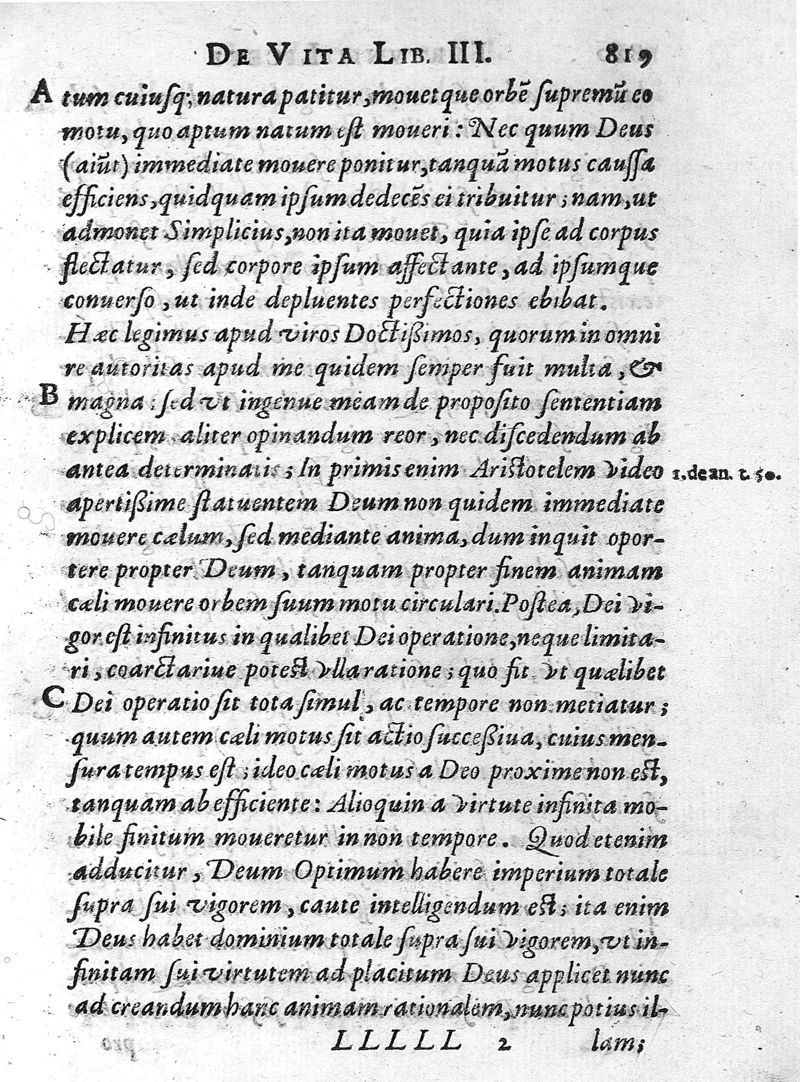 DE VITA LIB. III. 819
A tum cuiusq; natura patitur, mouetque orbẽ supremũ eo
motu, quo aptum natum est moueri: Nec quum Deus
(aiũt) immediate mouere ponitur, tanquã motus caussa
efficiens, quidquam ipsum dedecẽs ei tribuitur; nam, ut
admonet Simplicius, non ita mouet, quia ipse ad corpus
flectatur, sed corpore ipsum affectante, ad ipsumque
conuerso, ut inde depluentes perfectiones ebibat.
Hæc legimus apud viros Doctißimos, quorum in omni
re autoritas apud me quidem semper fuit multa, &
B magna: sed vt ingenue meam de proposito sententiam
explicem aliter opinandum reor, nec discedendum ab
antea determinatis; In primis enim Aristotelem video 1. de an. t. 50.
apertißime statuentem Deum non quidem immediate
mouere cælum, sed mediante anima, dum inquit opor-
tere propter Deum, tanquam propter finem animam
cæli mouere orbem suum motu circulari. Postea, Dei vi-
gor est infinitus in qualibet Dei operatione, neque limita-
ri, coarctariue potest vlla ratione; quo fit vt quælibet
C Dei operatio sit tota simul, ac tempore non metiatur;
quum autem cæli motus sit actio succeßiua, cuius men-
sura tempus est; ideo cæli motus a Deo proxime non est,
tanquam ab efficiente: Alioquin a virtute infinita mo-
bile finitum moueretur in non tempore. Quod etenim
adducitur, Deum Optimum habere imperium totale
supra sui vigorem, caute intelligendum est; ita enim
Deus habet dominium totale supra sui vigorem, vt in-
finitam sui virtutem ad placitum Deus applicet nunc
ad creandum hanc animam rationalem, nunc potius il-
LLLLL 2 lam;